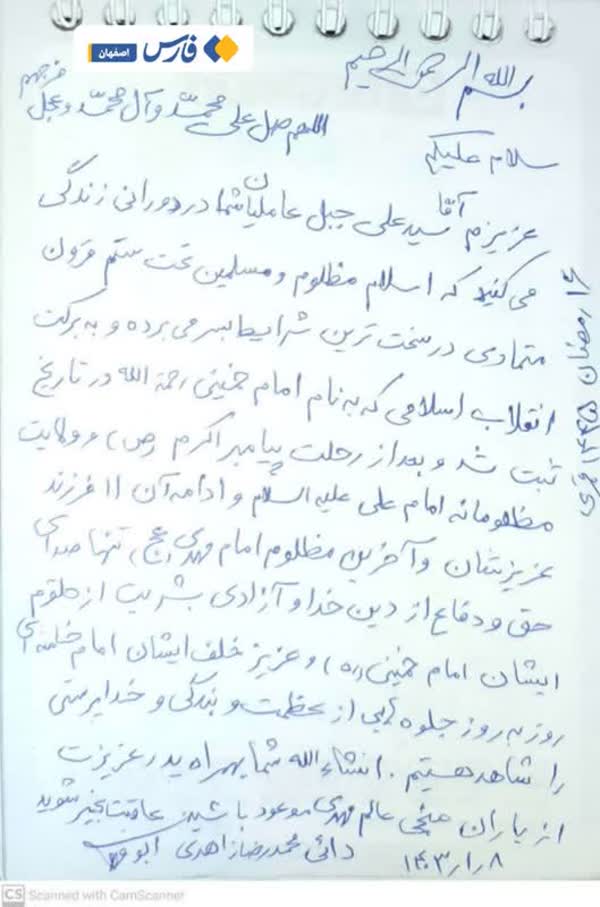 فارس اصفهان
بسم الله الرحمن الرحیم
اللهم صل علی محمد و آل محمد و عجل فرجهم
سلام علیکم
عزیزم آقا سید علی جبل عاملیان شما در دورانی زندگی
می کنید که اسلام مظلوم و مسلمین تحت ستم قرون
متمادی در سخت ترین شرایط بسر می برده و به برکت
انقلاب اسلامی که به نام امام خمینی رحمة الله در تاریخ
ثبت شد و بعد از رحلت پیامبر اکرم (ص) و ولایت
مظلومانه امام علی علیه السلام و ادامه آن ۱۱ فرزند
عزیزشان و آخرین مظلوم امام مهدی (عج) تنها صدای
حق و دفاع از دین خدا و آزادی بشریت از حلقوم
ایشان امام خمینی (ره) و عزیز خلف ایشان امام خامنه ای
روز به روز جلوه هایی از عظمت و بندگی و خداپرستی
را شاهد هستیم . انشاءالله شما بهمراه پدر عزیزت
از یاران منجی عالم مهدی موعود باشین عاقبت بخیر شوید
دائی محمدرضا زاهدی
۱۴۰۳/۱/۸
۱۶ رمضان ۱۴۴۵ قمری
CS Scanned with CamScanner